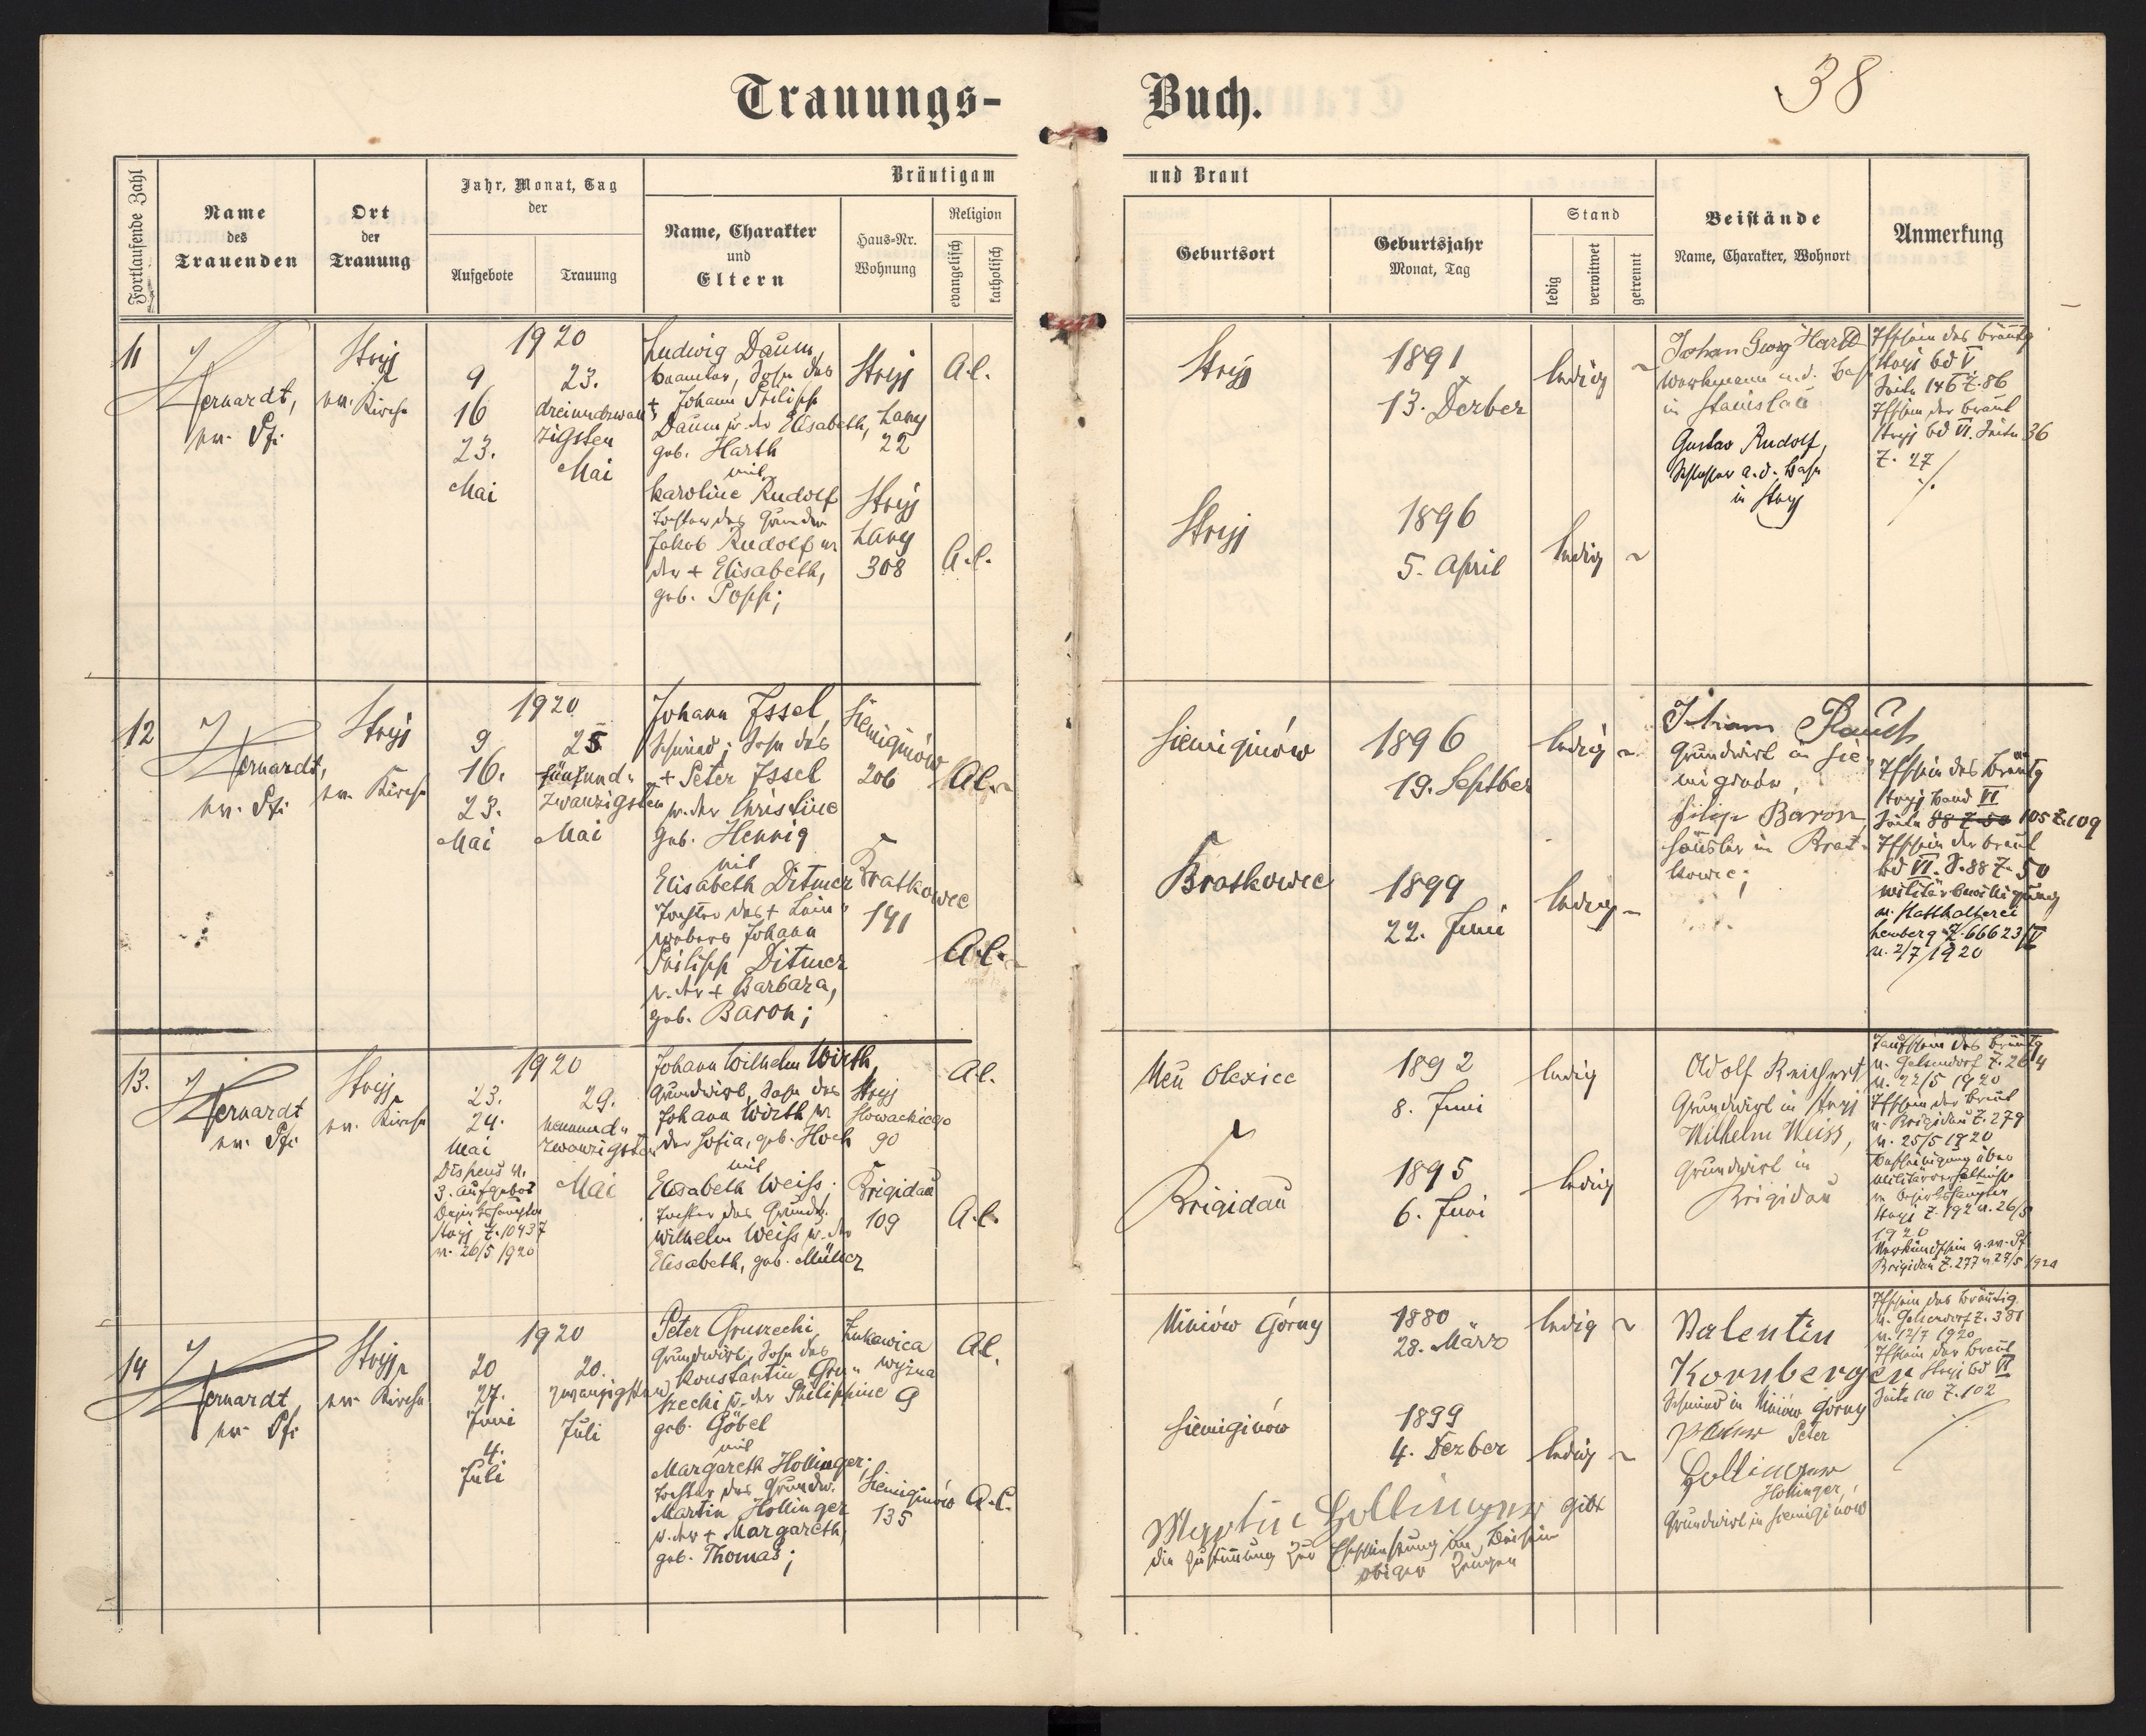 Trauungs-Buch.
38
Fortlaufende Zahl
Name
des
Trauenden
Ort
der
Trauung
Jahr, Monat, Tag
der
Aufgebote
Trauung
Bräutigam
und Braut
Name, Charakter
und
Eltern
Haus-Nr.
Wohnung
Religion
evangelisch
katholisch
Geburtsort
Geburtsjahr
Monat, Tag
Stand
ledig
verwitwet
getrennt
Beistände
Name, Charakter, Wohnort
Anmerkung
11
ev. Pfr
Stryj
ev. Kirche
1920
9
16
23.
Mai
23.
dreiundzwan
zigsten
Mai
Ludwig Daum,
Beamter, Sohn des
+ Johann Philipp
Daum u. der Elisabeth,
geb. Harth
mit
Karoline Rudolf
Tochter des Grundw
Jakob Rudolf u.
der + Elisabeth,
geb. Popp;
Stryj
Lany
22
Stryj
Lany
308
A.C.
A.C.
Stryj
Stryj
1891
13. Dezber
1896
5. April
ledig
ledig
Johan Georg Harth
Werkmann a.d. Bahn
in Stanislau
Gustav Rudolf,
Schlosser a.d. Bahn
in Stryj
Tfschein des Bräutg
Stryj Bd V
Seite 146 Z. 86
Tfschein der Braut
Stryj Bd VI. Seite 36
Z. 27
12
ev. Pfr
Stryj
ev. Kirche
1920
9
16.
23.
Mai
25
fünfund-
zwanzigsten
Mai
Johann Issel,
Schmied; Sohn des
+ Peter Issel
u. der Christine
geb. Hennig
mit
Elisabeth Ditmer
Tochter des + Lein-
webers Johann
Philipp Ditmer
u. der + Barbara,
geb. Baron;
Siemiginów
206
Bratkowce
141
A.C.
A.C.
Siemiginów
Bratkowce
1896
19. Septber
1899
22. Juni
ledig
ledig
Johann Rauch
Grundwirt in Sie-
miginów,
Filip Baron
Häusler in Brat-
kowce;
Tfschein des Bräutg
Stryj Band VI
Seite 88 Z. 50 105 Z. 109
Tfschein der Braut
Bd VI. S. 88 Z. 50
Militärbewilligung
d. Statthalterei
Lemberg Z. 66623/V
v. 2/7 1920
13.
ev. Pfr
Stryj
ev. Kirche
1920
23.
24.
Mai
Dispens v.
3. Aufgebot
Bezirkshauptm
Stryj Z. 10437
v. 26/5 1920
29.
neunund-
zwanzigsten
Mai
Johann Wilhelm Wirth,
Grundwirt, Sohn des
Johann Wirth u.
der Sofia, geb. Hoch
mit
Elisabeth Weiss.
Tochter des Grundw.
Wilhelm Weiss u. der
Elisabeth, geb. Müller
Stryj
Slowackiego
90
Brigidau
109
A.C.
A.C.
Neu Olexice
Brigidau
1892
8. Juni
1895
6. Juni
ledig
ledig
Adolf Reichert
Grundwirt in Stryj
Wilhelm Weiss,
Grundwirt in
Brigidau
Taufschein des Bräutg
v. Gelsendorf Z. 264
v. 22/5 1920
Tfschein der Braut
v. Brigidau Z. 279
v. 25/5 1920
Bescheinigung über
Militärverhältnisse
v. Bezirkshauptm
Stryj Z. 192 v. 26/5
1920
Verkündschein v. ev. Pf
Brigidau Z. 277 v. 27/5 1920
14
ev. Pfr
Stryj
ev. Kirche
1920
20
27.
Juni
4.
Juli
20.
zwanzigsten
Juli
Peter Gruszecki,
Grundwirt, Sohn des
Konstantin Gru-
szecki u. der Philippine
geb. Göbel
mit
Margareth Hollinger;
Tochter des Grundw.
Martin Hollinger
u. der + Margareth,
geb. Thomas;
Zukawica
wyzna
9
Siemiginów
135
A.C.
A.C.
Uniów Górny
Siemiginów
1880
28. März
1899
4. Dezber
ledig
ledig
Martin Hollinger gibt
die Zustimmung zur Eheschliessung im Beisein
obiger Zeugen
Valentin
Kornberger
Schmied in Uniów Górny
Peter
Hollinger,
Grundwirt in Siemiginów
Tfschein des Bräutig.
v. Gelsendorf Z. 381
v. 12/7 1920
Tfschein der Braut
Stryj Bd VI
Seite 110 Z. 102